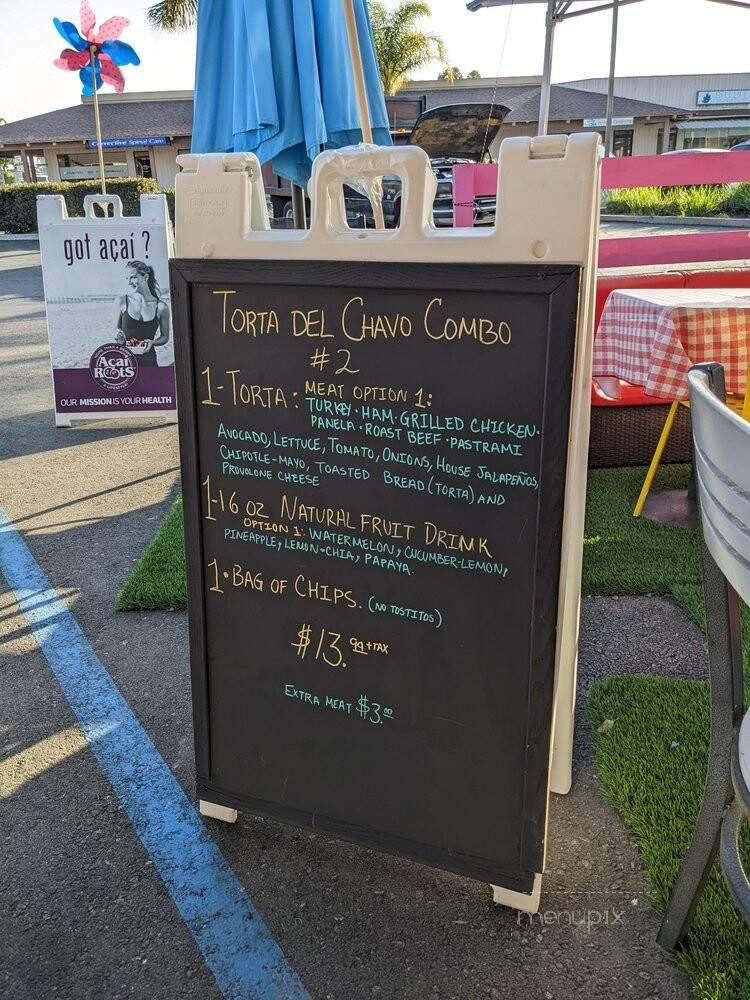 Corrective Spinal Care
got açaí ?
Açaí
Roots
OUR MISSION IS YOUR HEALTH
TORTA DEL CHAVO COMBO
#2
1-TORTA: MEAT OPTION 1:
TURKEY·HAM·GRILLED CHICKEN·
PANELA·ROAST BEEF·PASTRAMI
AVOCADO, LETTUCE, TOMATO, ONIONS, HOUSE JALAPEÑOS,
CHIPOTLE-MAYO, TOASTED BREAD (TORTA) AND
PROVOLONE CHEESE
1-16 OZ NATURAL FRUIT DRINK
OPTION 1: WATERMELON, CUCUMBER-LEMON,
PINEAPPLE, LEMON-CHIA, PAPAYA.
1·BAG OF CHIPS. (NO TOSTITOS)
$13.99+TAX
EXTRA MEAT $3.00
menupix